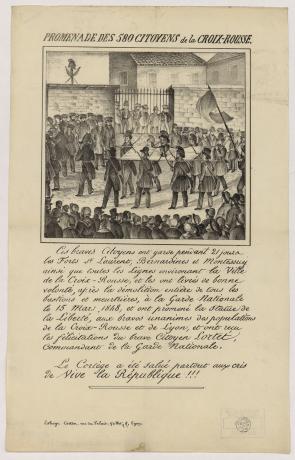 PROMENADE DES 580 CITOYENS de la CROIX-ROUSSE.
Ces braves Citoyens ont gardé pendant 21 jours
les Forts St Laurent, Bernardines et Montessuy
ainsi que toutes les Lignes environant la Ville
de la Croix-Rousse, et les ont livrés de bonne
volonté, après la démolition entière de tous les
bastions et meurtrières, à la Garde Nationale
le 15 Mars 1848, et ont promené la statue de
la Liberté, aux bravos unanimes des populations
de la Croix-Rousse et de Lyon, et ont reçu
les félicitations du brave Citoyen Lortet,
Commandant de la Garde Nationale.
Le Cortège a été Salué partout aux cris
de Vive la République !!!
Lyon